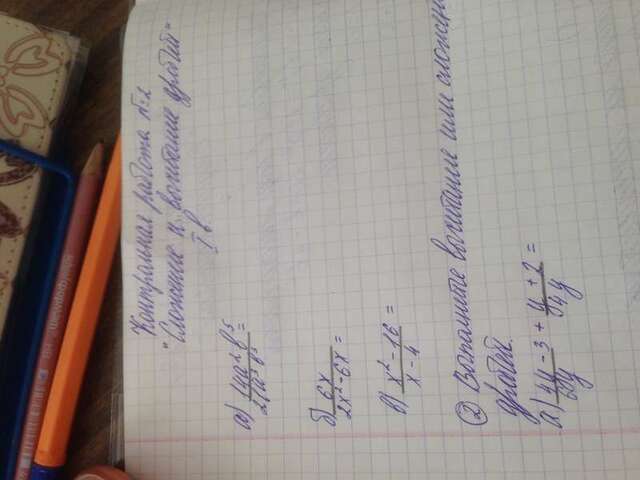 Контрольная работа №1
"Сложение и вычитание дробей"
I в
а) 14a²b⁵ =
б) 6x / 2x² - 6x =
в) x² - 16 / x - 4 =
② Выполните вычитание или сложение
дробей.
а) 4y - 3 + y + 2 / 4y =